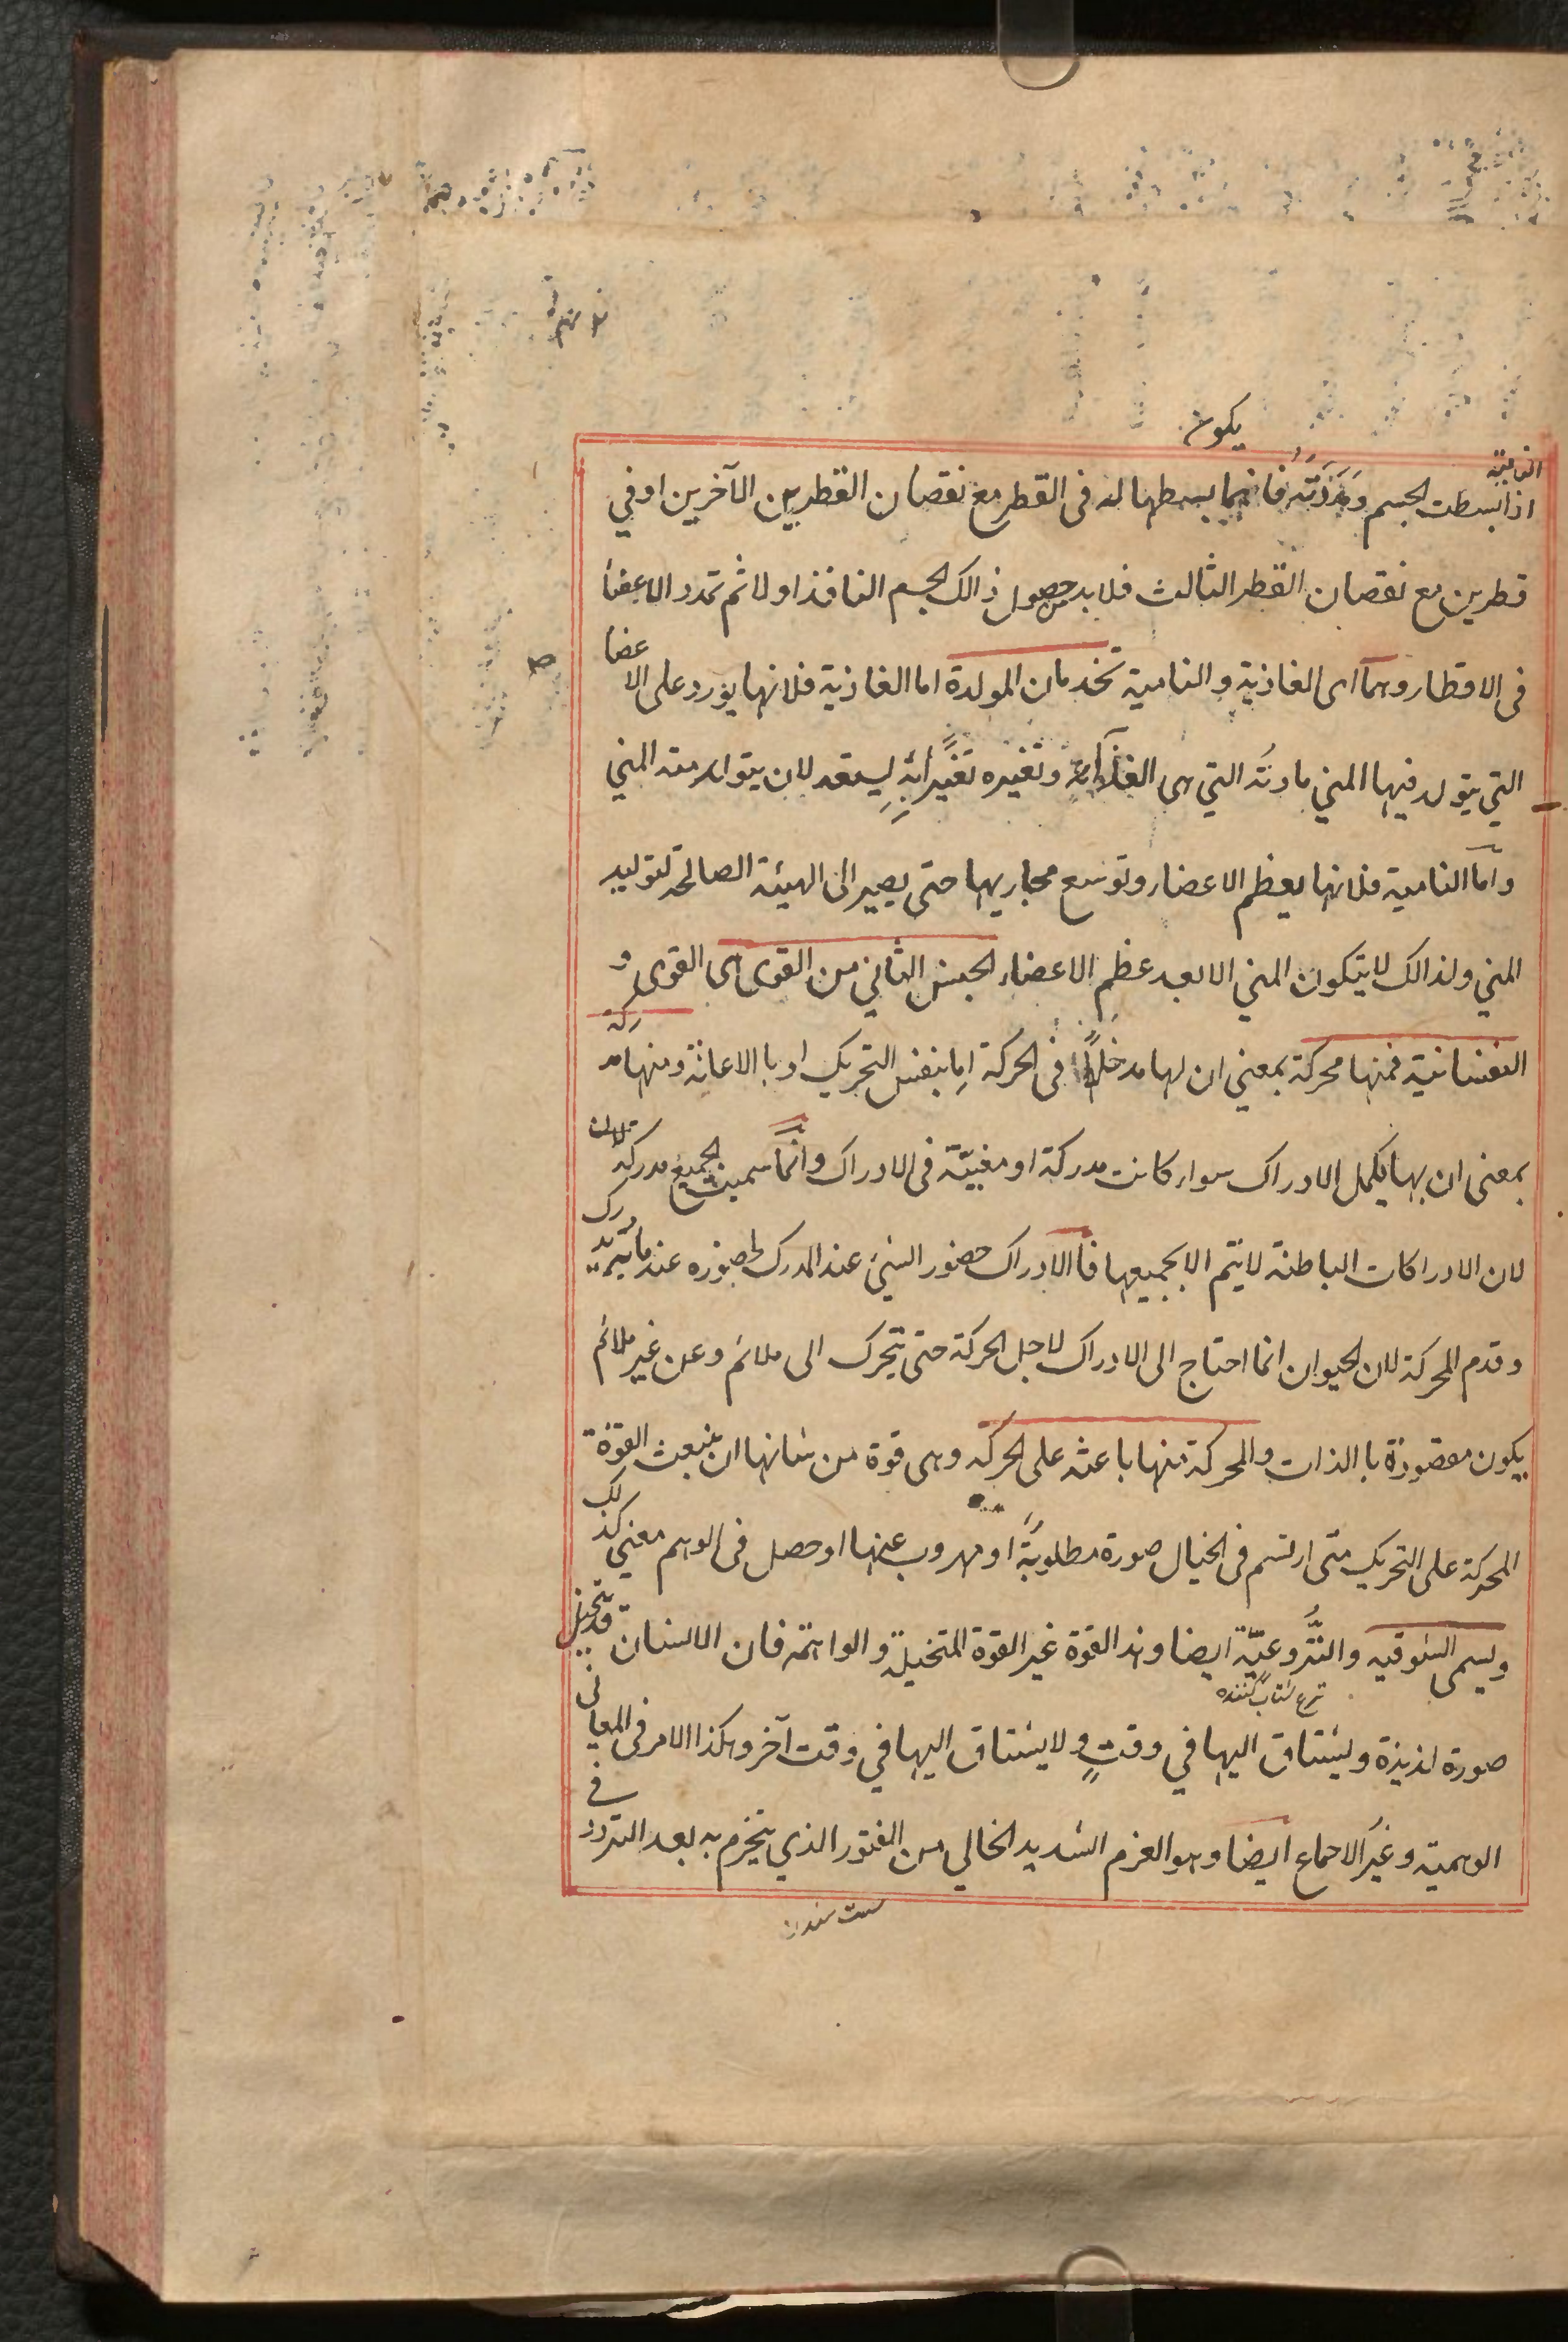 يكون
الغاذية
اذا بسطت الجسم ومددته فانما بسطها له فى القطر مع نقصان القطرين الآخرين او في
قطرين مع نقصان القطر الثالث فلا بد من حصول ذالك الجسم النافذ اولا ثم تمدد الاعضا
فى الاقطار وهما اى الغاذية والنامية تخدمان المولدة اما الغاذية فلانها يورد على الاعضا
التي يتولد فيها المني مادته التي هى الغذا وتغيره تغيّراً ليستعد لان يتولد منه المني
وامّا النامية فلانها يعظم الاعضاء وتوسع مجاريها حتى يصير الى الهيئة الصالحة لتوليد
المني ولذالك لا يتكون المني الا بعد عظم الاعضاء الجنس الثاني من القوى اى القوى و
النفسانية فمنها محركة بمعنى ان لها مدخلاً فى الحركة اما بنفس التحريك او با الاعانة ومنها مدركة
بمعنى ان بها يكمل الادراك سواء كانت مدركة او مغنيّة فى الادراك وانمّا سميت الجميع مدركة لان
لان الادراكات الباطنة لا يتم الا بجميعها فا الادراك حضور الشئ عند المدرك لحضوره عند ما به يدرك
وقدم المحركة لان الحيوان انما احتاج الى الادراك لاجل الحركة حتى يتحرك الى ملائم وعن غير ملائم
يكون مقصودة با الذات والمحركة منها باعثه على الحركه وهى قوة من شانها ان ينبعث القوة
المحركة على التحريك متى ارتسم فى الخيال صورة مطلوبةً او مهروب عنها او حصل فى الوهم معنى كذلك
ويسمى الشوقيه والنّزوعيّة ايضا وهذ القوة غير القوة المتخيلة والواهمة فان الانسان قد يتخيل
نزع شتاب كننده
صورة لذيذة ويشتاق اليها في وقتٍ ولا يشتاق اليها في وقت آخر وهكذا الامر فى المعانى
الوهمية وغير الاجماع ايضا وهو العزم الشديد الخالي من الفتور الذي ينجزم به بعد التردد في
سست شدن